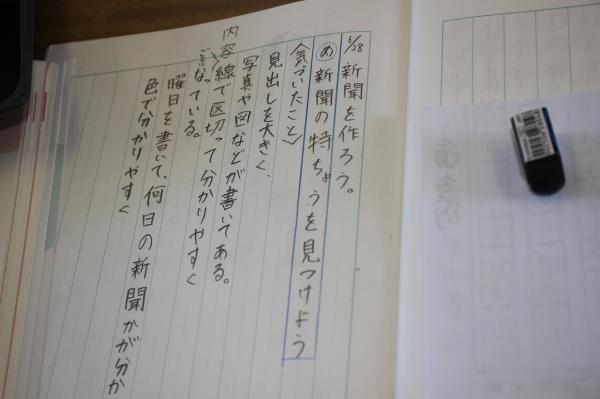 5/28 新聞を作ろう。
め 新聞の特ちょうを見つけよう
〈気づいたこと〉
見出しを大きく、
写真や図などが書いてある。
内容
線で区切って分かりやすく
ごとに
なっている。
曜日を書いて、何日の新聞かが分か
色で分かりやすく